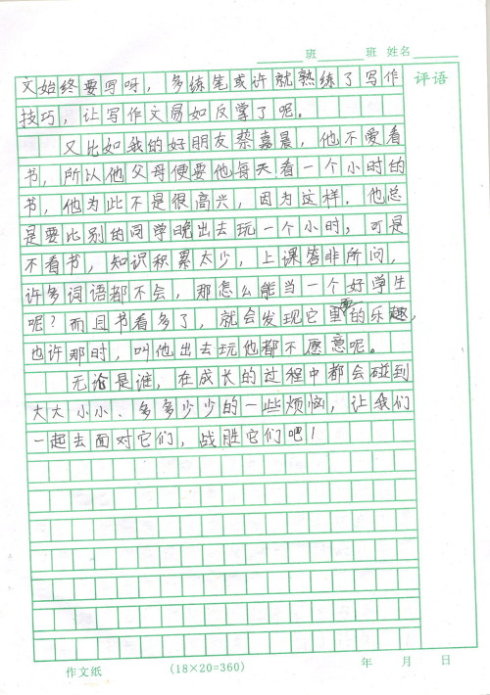 班 班 姓名
评语
文始终要写呀，多练笔或许就熟练了写作
技巧，让写作文易如反掌了呢。
又比如我的好朋友蔡嘉晨，他不爱看
书，所以他父母便要他每天看一个小时的
书，他为此不是很高兴，因为这样，他总
是要比别的同学晚出去玩一个小时，可是
不看书，知识积累太少，上课答非所问，
许多词语都不会，那怎么能当一个好学生
呢？而且书看多了，就会发现它里的乐趣，
也许那时，叫他出去玩他都不愿意呢。
无论是谁，在成长的过程中都会碰到
大大小小、多多少少的一些烦恼，让我们
一起去面对它们，战胜它们吧！
作文纸 (18×20=360) 年 月 日